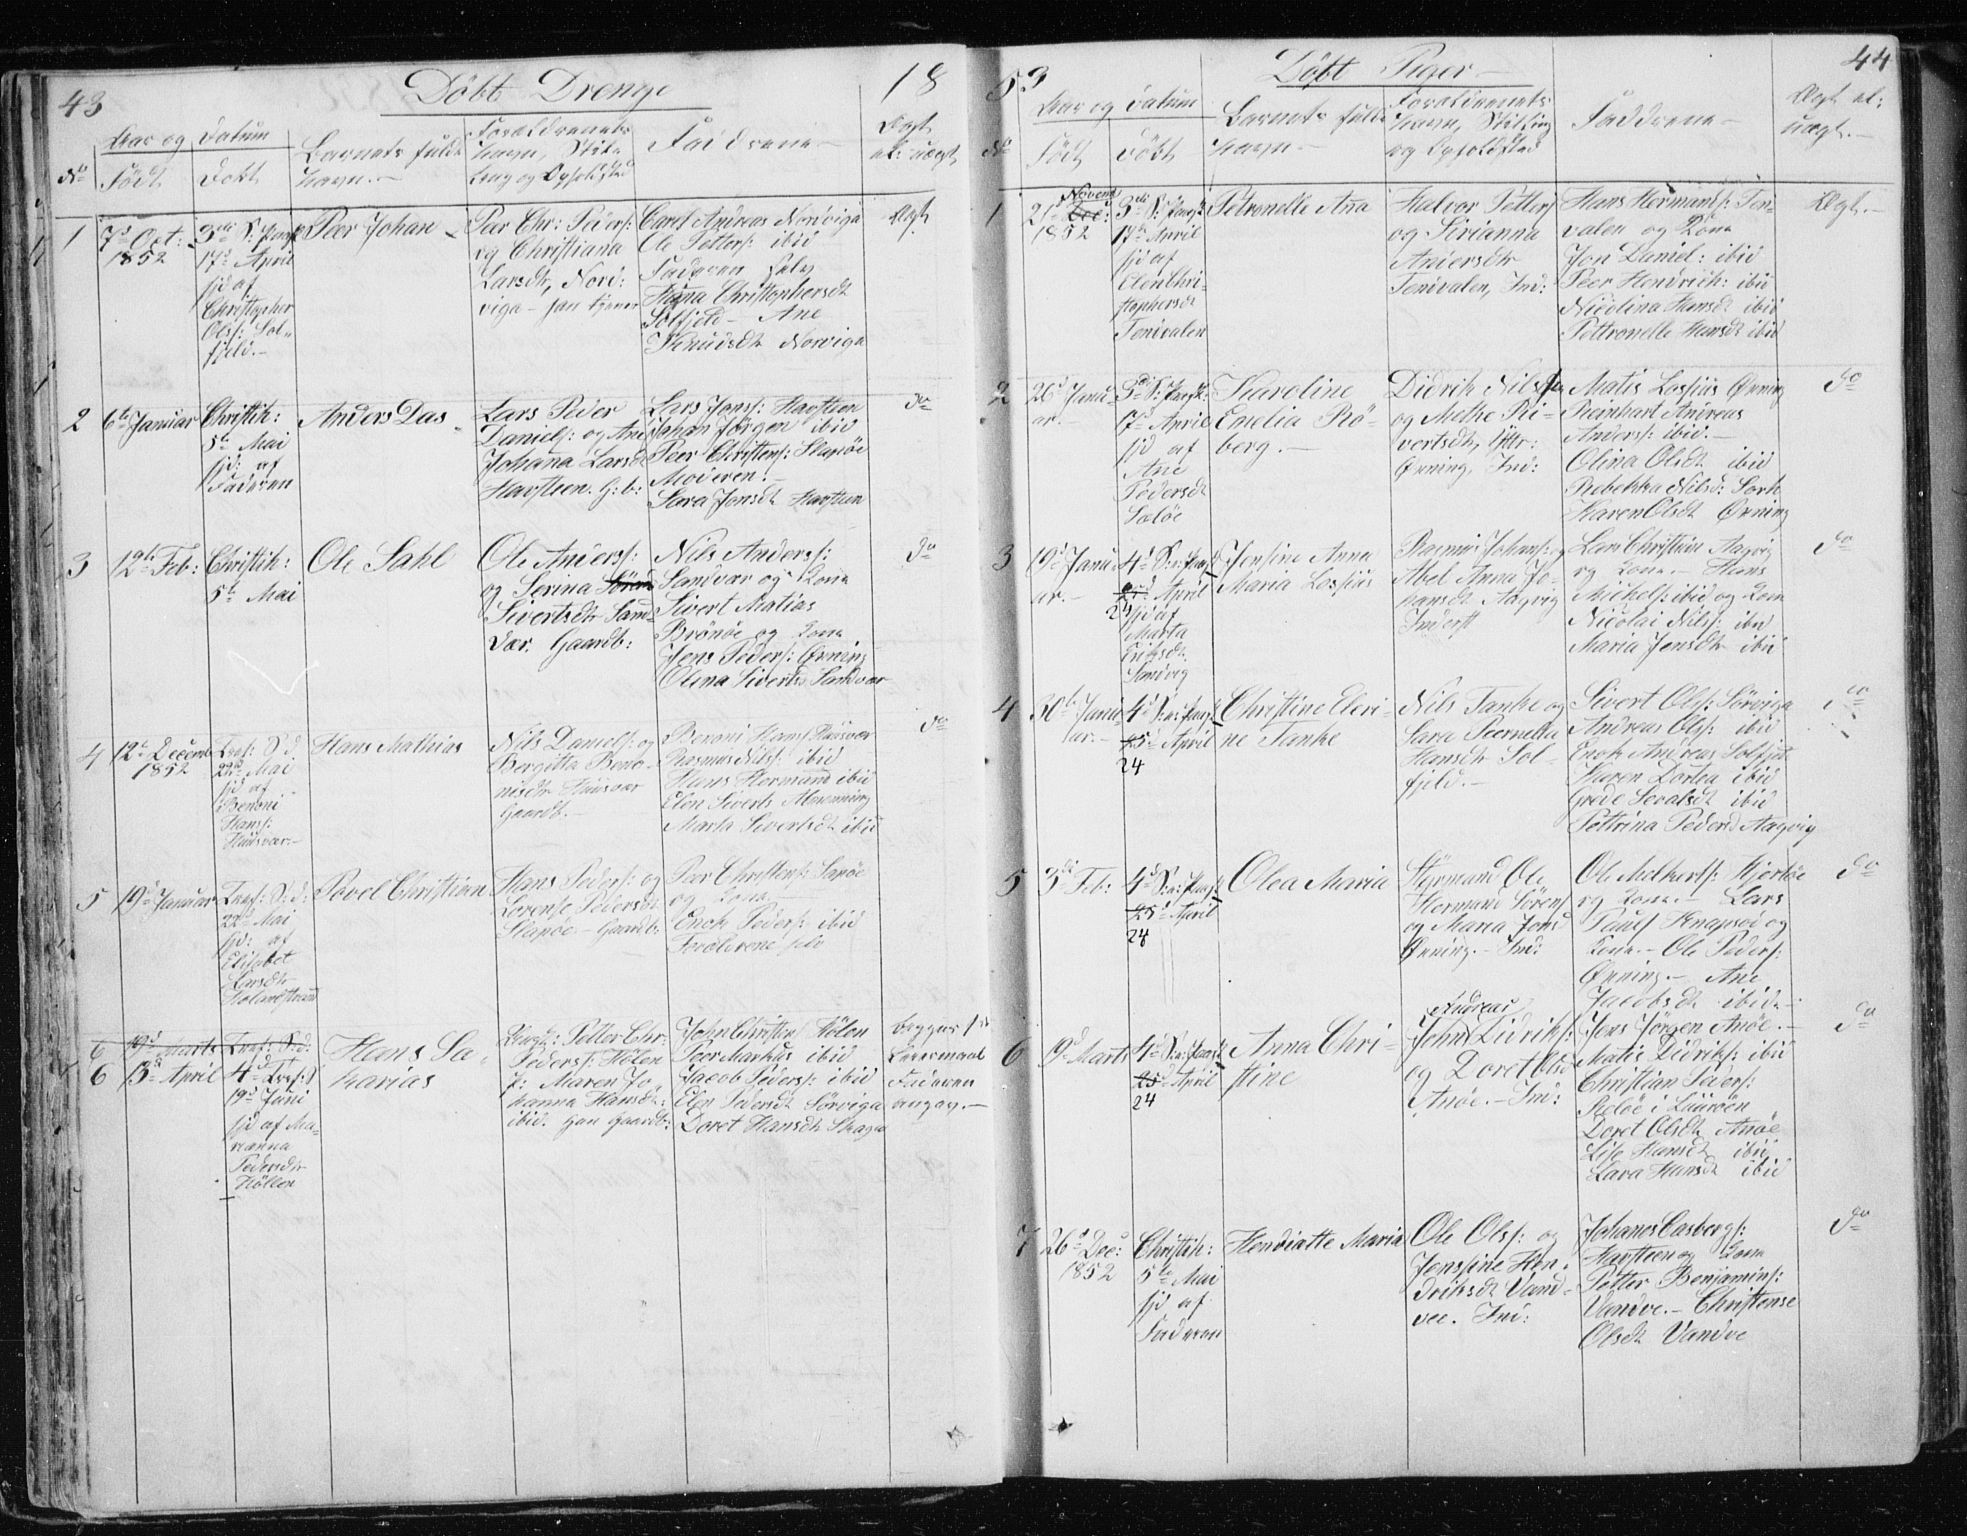 43
Döbt Drenge
18
Aar og Datum
Barnets fulde
Navn.-
Forældrenes
Navn, Stil-
ling og Opholdsted
Faddrene
Ægt
el: uægt.
No
Født
Døbt
1
7d Oct:
1852
3die S: Paask
17d April
hjd af
Christopher
Olss: Sol-
fjeld.-
Peer Johan
Peer Chr: Peders:
og Christiana
Larsdtr, Nord:
viga -
Carel Andreas Norviga
Ole Petters: ibid
Faderen selv
Hana Christophersdt
Solfjeld - Ane
Knudsdt Norviga
Ægt.
2
6te Januar
Christih:
5te Mai
hjd: af
Faderen
Anders Das
Lars Peder
Daniels: og Ane
Johana Larsdt
Havsteen. G: b:
Lars Jons: Havsteen
Johan Jörgen ibid
Peer Christens: Slapöe
Moderen.-
Sara Jonsdt Havsteen
do
3
12te Feb:
Christih:
5te Mai
Ole Sahl
Ole Anders:
og Serina
Sivertsdtr Sand-
vær. Gaardb:
Nils Anderss:
Sandvær og Kone
Sivert Matias
Brönöe og Kone
Jens Peders: Övning
Olena Sivertsd Sandvær
do
4
12te Decemb
1852
Tref: S:d
22de Mai
hjd af
Benoni
Hans:
Huusvær.-
Hans Mathias
Nils Daniels: og
Bergitta Beno-
nisdtr Huusvær
Gaardb.-
Benoni Hans: Huusvær
Rasmus Nils: ibid
Hans Hermand ibid
Elen Siverts Almenning
Marta Sivertsdt ibid
do
5
19d Januar
Tref: S:d:
22de Mai
hjd: af
Elisabet
Larsdtr
Holandstrand
Povel Christian
Hans Peders: og
Lorense Pedersdt
Slapöe - Gaardb:
Peer Christens: Slapöe
og Kone -
Enok Peders: ibid
Forældrene selv
6 19d Marts Tref: S:d:
6
13d April
4d Tref: S
19d Juni
hjd af Ma-
rianna
Pedersdtr
Höllen
Hans Sa-
karias
Ungk: Petter Chr-
Peders: Hölen
p: Maren Jo-
hanna Hansdt:
ibid. han Gaardb:
John Christen Hölen
Peer Markus ibid
Jacob Peders: ibid
Elen Pedersdt Sörviga
Doret Hansdt Skaga
begges 1te
Leiermaal
Faderen
angav.-
44
53
Döbt Piger
Aar og Datum
Barnets fulde
Navn -
Forældrenes
Navn, Stilling
og Opholdsted
Faddrene -
Ægt el:
uægt.-
No
Født
Døbt
1
Novemb
21d Dec:
1852
3die S: Paask
17de April
hjd af
Elen Chri-
stophersdt
Tenvalen
Petronelle Ana
Halvor Petters
og Sirianna
Andersdtr
Tenvalen, Ind:
Hans Hermands: Ten-
valen og Kone
Jon Daniel: ibid
Peer Hendrich: ibid
Nicolina Hansdt ibid
Pettronelle Hansdt ibid
Ægt.-
2
26d Janu-
ar.-
3de S: Paask:
17d April
hjd af
Ane
Pedersdt
Saløe
Karoline
Emelia Rö-
berg.-
Didrik Nilssen
og Methe Si-
vertsdt, Yttr:
Övning, Ind:
Matis Lossius Övning
Reinhart Andreas
Anders: ibid.-
Olina Olsdt ibid
Rebekka Nilsd:
Karen Olsdt Övning
do
3
19d Janu-
ar.-
4d S: e: Paask
25d April
24 hjd af
Marta
Eriksdt
Sandvig
Jensine Anne
Maria Lossius
Rasmus Johans: og
Abel Anna Jo-
hansdt Aagvig
Inderst
Lars Christian Aagvig
og Kone.- Hans
Mickels: ibid og Kone
Nicolai Nils: ibid
Maria Jensdtr ibid
do
4
30te Janu-
ar.-
4d S: e: Paask
25d April
24
Christine Eleri-
ne Tanke
Nils Tanke og
Sara Peernella
Hansdt Sol-
fjeld.-
Sivert Ols: Sörviga
Andreas Ols: ibid
Enok Andreas Solfjel
Karen Dortea ibid
Grede Sevalsdt ibid
Pettrina Pedersd Aagvig
do
5
3die Feb:
4d S: e: Paask
25d April
24
Olea Maria
Styrmand Ole
Hermand Sörens
og Maria Jons
Övning.- Ind:
Ole Melkerts: Hjertöe
og Kone.- Lars
Pauls Knapsöe og
Kone.- Ole Peders:
Övning.- Ane
Jacobsdt ibid.-
do
6
19d Marts
4d S: e: Paask
25d April
24
Anna Chri-
stine
Andreas
John Didriks:
og Doret Olsd
Anöe.- Ind:
Jens Jörgen Anöe.-
Matis Didriks: ibid
Christian Peders:
Selöe i Luuröen
Doret Olsdt Anöe
Lise Hansdt ibid
Lava Hansdt ibid
do
7
26d Dec:
1852
Christih:
5te Mai
hjd af
Faderen
Hendiatte Maria
Ole Ols: og
Jenssine Hen-
driksdt Vand-
vee. Ind:
Johanes Casbergs:
Havsteen og Kone
Petter Benjamins:
Vandve.- Christense
Olsdt Vandve
do